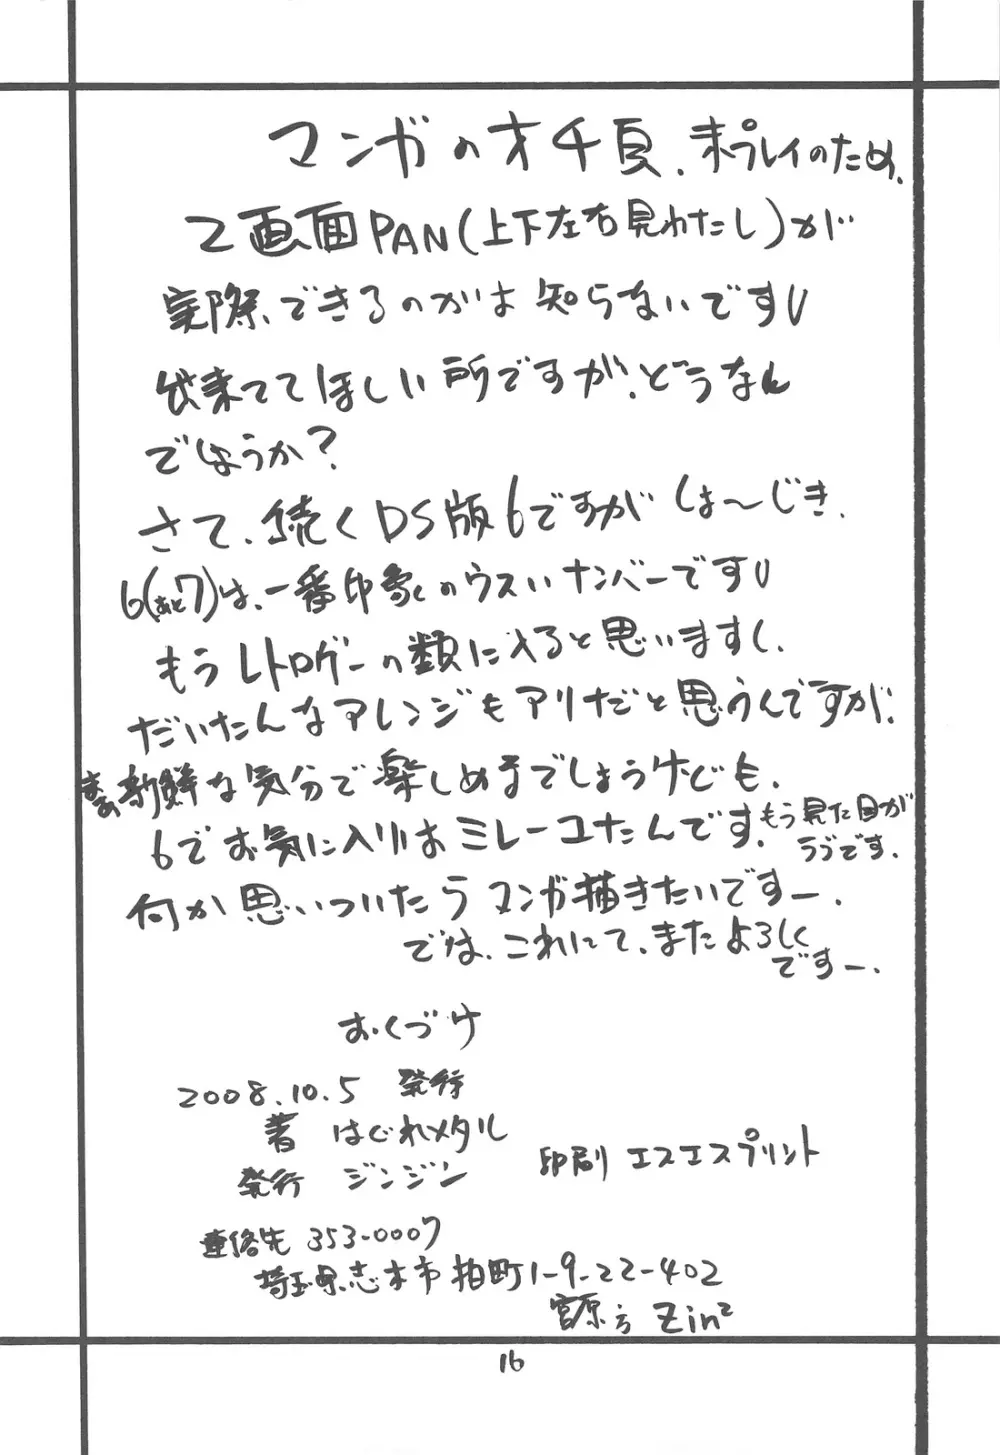 マンガのオチ頁、未プレイのため、
2画面PAN(上下左右見わたし)が
実際、できるのかは知らないですU
出来てて ほしい所ですが、どうなん
でしょうか?
さて、続くDS版6ですが しょ〜じき、
6(あと7)は、一番印象のウスいナンバーですU
もうレトロゲーの類に入ると思いますし、
だいたんなアレンジもアリだと思うんですが、
まあ新鮮な気分で楽しめるでしょうけども、
6でお気に入りはミレーユたんです。もう見た目が
ラヴです。
何か思いついたらマンガ描きたいですー、
では、これにて、またよろしく
ですー、
おくづけ
2008.10.5 発行
著 はぐれメタル
発行 ジンジン
印刷 エスエスプリント
連絡先 353-0007
埼玉県志木市柏町1-9-22-402
宮原方 Zin²
16